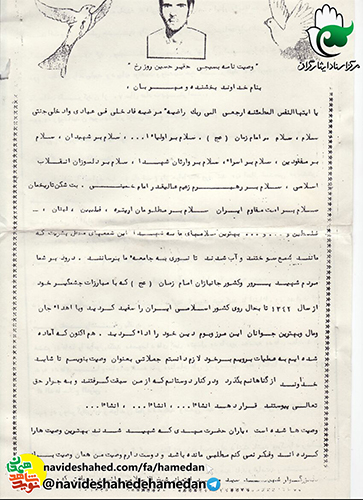 مرکز اسناد ایثارگران
" وصیت نامه بسیجی حقیر حسین روز رخ "
بنام خداوند بخشنده و مهربان ،
یا ایتها النفس المطمئنه ارجعی الی ربك راضیه مرضیه فاد خلی فی عبادی واد خلی جنتی
سلام ، سلام بر امام زمان ( عج ) . سلام بر اولیاء ا... ، سلام بر شهیدان ، سلام
بر مفقودین ، سلام بر اسراء ، سلام بر وارثان شهدا ، سلام بر دلسوزان انقلاب
اسلامی ، سلام بر رهبرم زعیم عالیقدر امام خمینی ، بت شکن تاریخمان
سلام بر امت مقاوم ایران سلام بر مظلومان اریتره ، فلسطین ، لبنان ، ـ
و ... و ... بهترین سلامهای ما به شهدا این شمعهای محفل بشریت که
مانند شمع سوختند و آب شدند تا نوری به جامعه ما برسانند . درود بر شما
مردم شهید پرور وکشور جانبازان امام زمان ( عج ) که با مبارزات چشمگیر خود
از سال ۱۳۴۲ تا بحال روی کشور اسلامی ایران را سفید کردید وبا اهداء جان
ومال وبهترین جوانان این مرز وبوم دین خود را اداء کردید . هم اکنون که آماده
شده ایم به عملیات برویم بر خود لازم دانستم جملاتی بعنوان وصیت بنویسم تا شاید
خداوند از گناهانم بگذرد ودر کنار دوستانم که از من سبقت گرفتند و به جوار حق
تعالی پیوستند قرار دهد انشاءا... ، انشاءا... ، انشاءا...
وصیت ها شده است ، یاران حضرت مهدی که شهید شدند بهترین وصیت هارا
کرده اند وفکر نمی کنم مطلبی مانده باشد . و دوست دارم وصیت من همان وصیت
navideshahed.com/fa/hamedan
@navideshahedehamedan